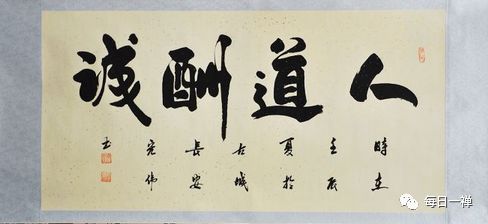 人道酬誠
時在
壬辰
夏於
古城
長安
每日一禅